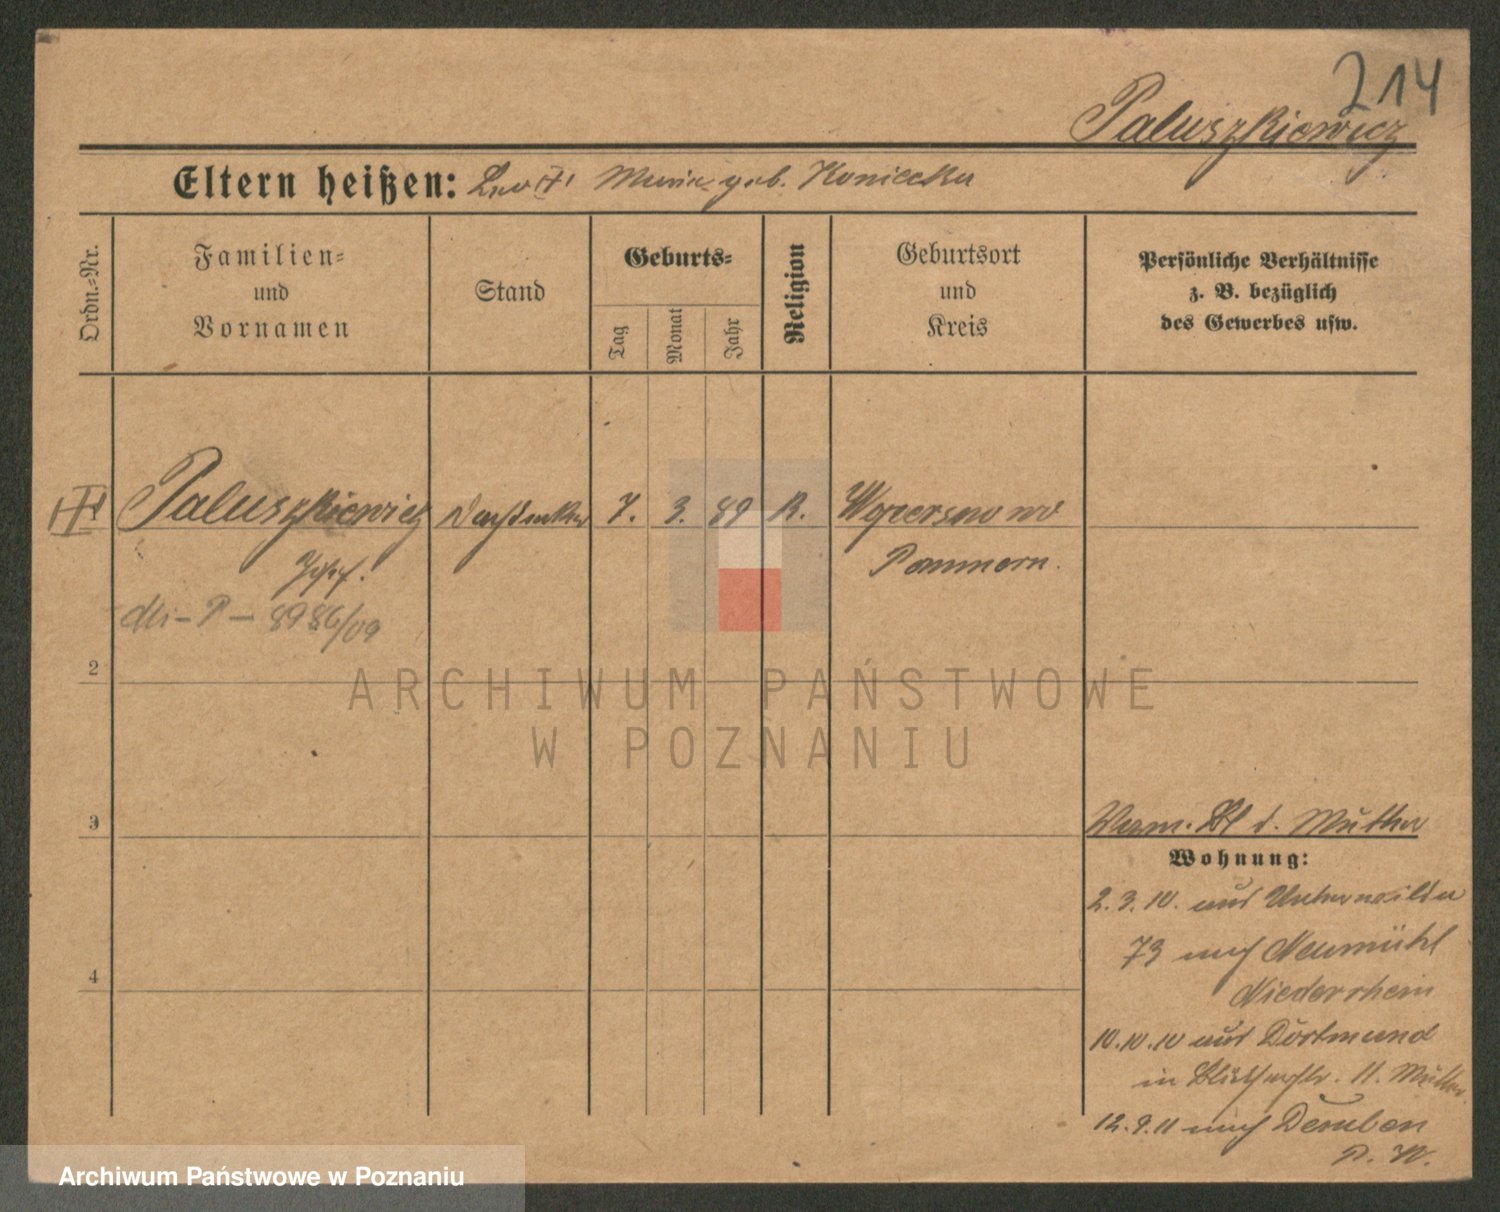 214
Paluszkiewicz
Eltern heißen: Leo Marie geb. Koniecka
Ordn.-Nr.
Familien-
und
Vornamen
Stand
Geburts-
Tag
Monat
Jahr
Religion
Geburtsort
und
Kreis
Persönliche Verhältnisse
z. B. bezüglich
des Gewerbes usw.
Paluszkiewicz Dachdecker 7. 3. 89 K. Wopersnowo
Josef. Pommern.
P - 8986/09
2
3
4
Verm. Bl d. Mutter
Wohnung:
2. 3. 10. aus Unterwilda
73 nach Neumühl
Niederrhein
10.10.10 aus Dortmund
in 11. Mutter
12.9.11 nach Deuben
P. W.
ARCHIWUM PAŃSTWOWE
W POZNANIU
Archiwum Państwowe w Poznaniu